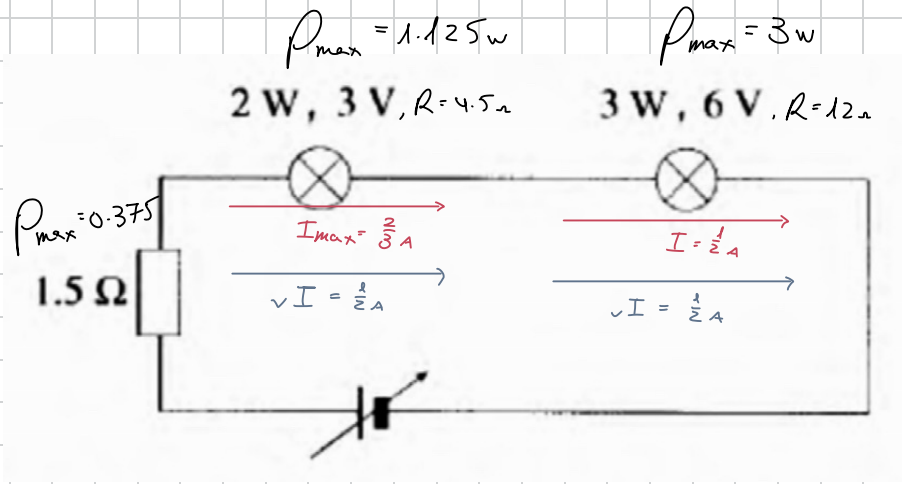 Pmax = 1.125w
Pmax = 3w
2 W , 3 V , R = 4.5Ω
3 W , 6 V . R = 12Ω
Pmax = 0.375
Imax = 2/3 A
I = 1/2 A
1.5 Ω
✓ I = 1/2 A
✓ I = 1/2 A